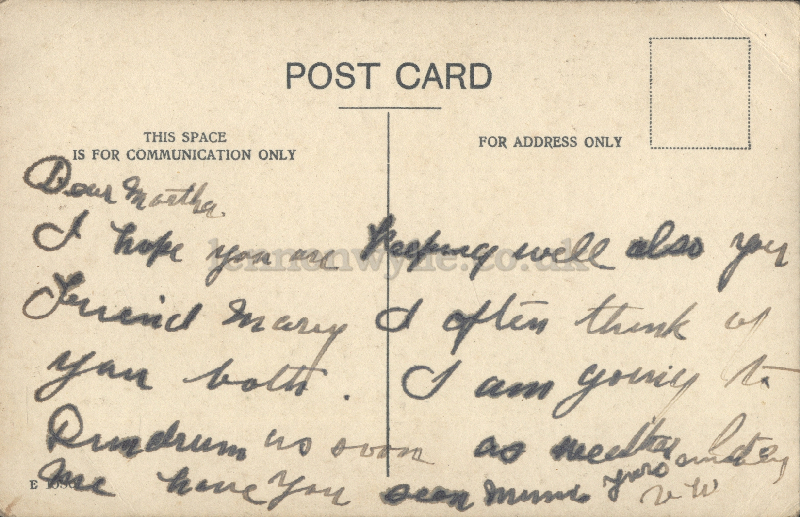 POST CARD
THIS SPACE
IS FOR COMMUNICATION ONLY
FOR ADDRESS ONLY
Dear Martha.
I hope you are keeping well also you
friend Mary I often think of
you both. I am going to
Dundrum as soon as
me have you seen Minnie yours
V W
lennonwylie.co.uk